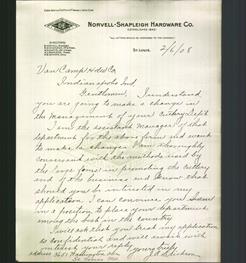 NORVELL-SHAPLEIGH HARDWARE CO.
ST. LOUIS. 2/6/08
Van Camp Hdw Co
Indianapolis Ind
Gentlemen, I understand
you are going to make a change in
the management of your Cutlery Dept
I am the assistant manager of that
department for the above firm and want
to make a change. I am thoroughly
conversant with the methods used by
the large firms in promoting the cutlery
end of the business and
should you be interested in my
application, I can convince you I am
in a position to place your department
among the best in the country
I will ask that you treat my application
as confidential and will await with
interest your reply
yours truly